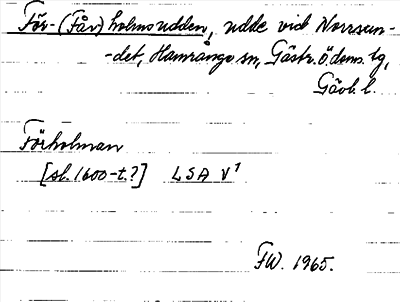 För- (Får) holmsudden, udde vid Norrsun-
-det, Hamrånge sn, Gästr. ö. doms. lg,
Gävl. l.
Förholman
[sl. 1600-t.?] LSA V¹
FW. 1965.